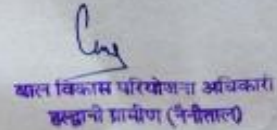 बाल विकास परियोजना अधिकारी
हल्द्वानी ग्रामीण (नैनीताल)